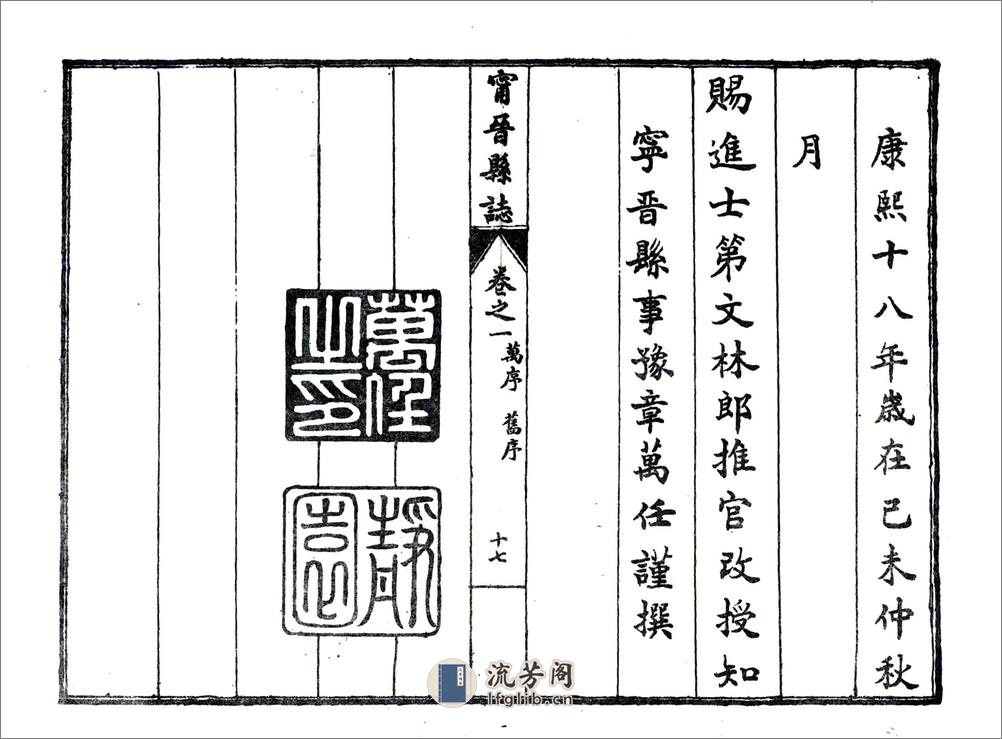 康熙十八年歲在己未仲秋
月
賜進士第文林郎推官改授知
寧晉縣事豫章萬任謹撰
甯晉縣誌
卷之一 萬序 舊序
十七
萬任之印
靜園
流芳阁
hfgihlib.cn